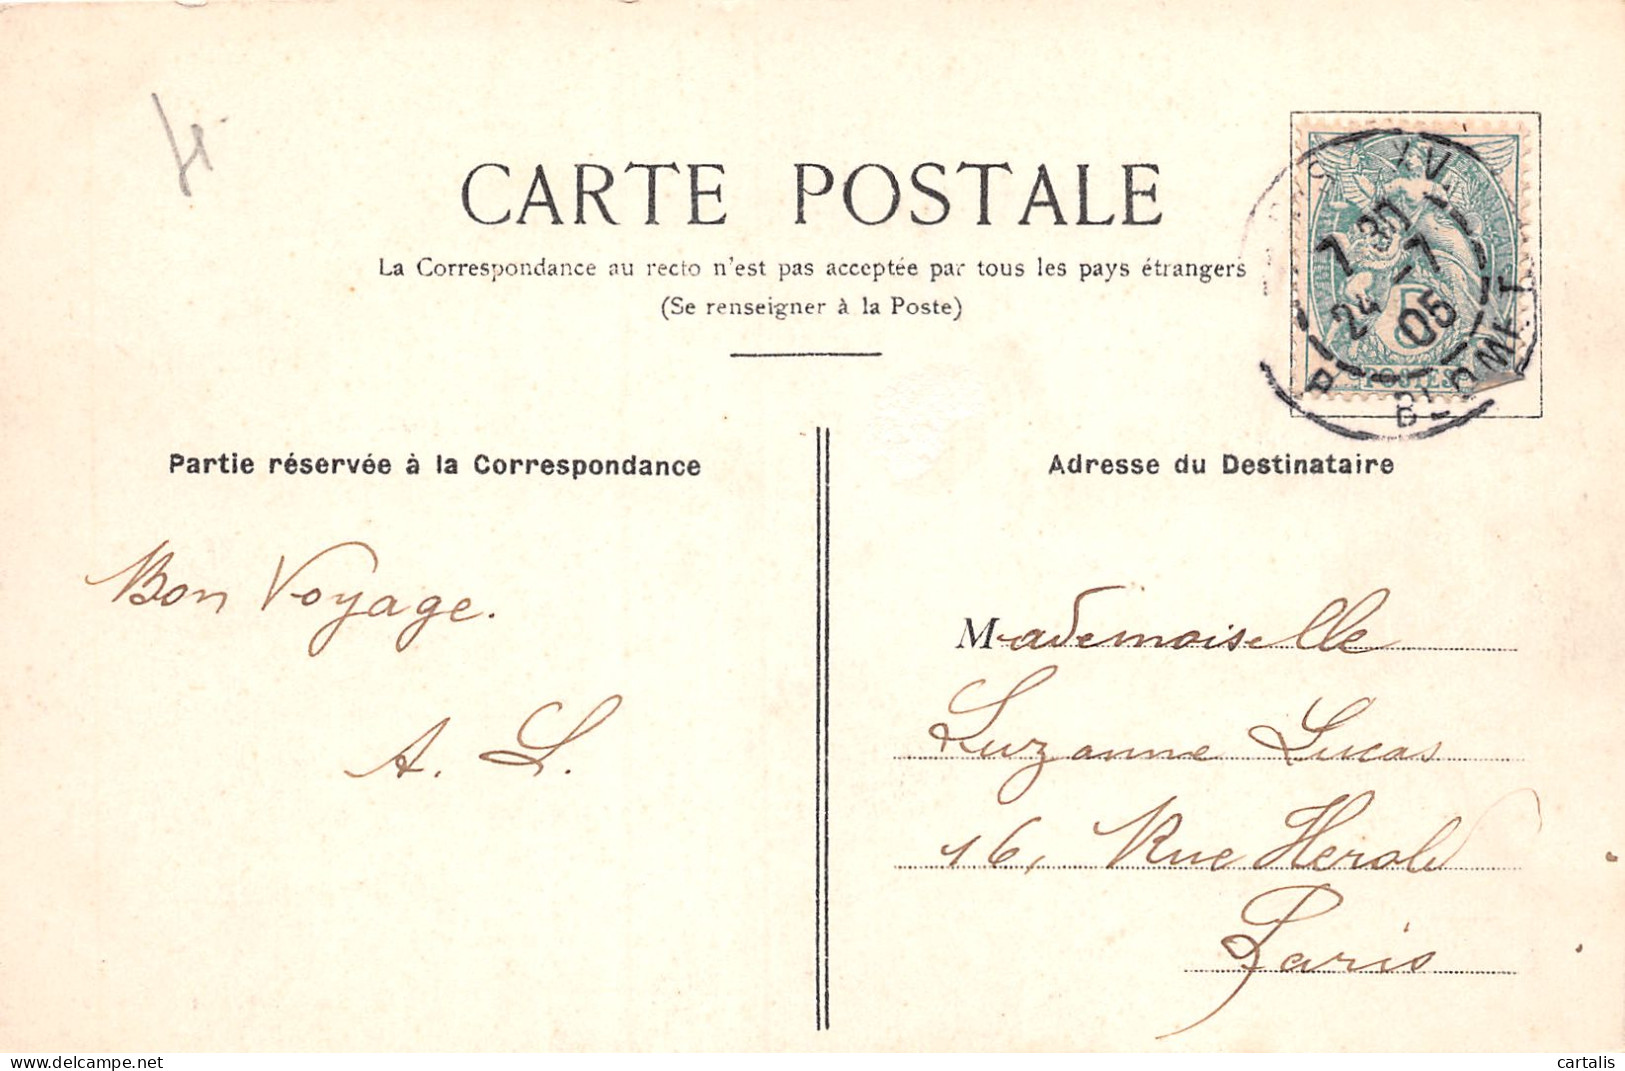 CARTE POSTALE
La Correspondance au recto n'est pas acceptée par tous les pays étrangers
(Se renseigner à la Poste)
7 30
24 - 7
05
XV.
BLOMET
5
POSTES
Partie réservée à la Correspondance
Bon Voyage.
A. L.
Adresse du Destinataire
Mademoiselle
Suzanne Lucas
16, Rue Herold
Paris
www.delcampe.net
cartalis